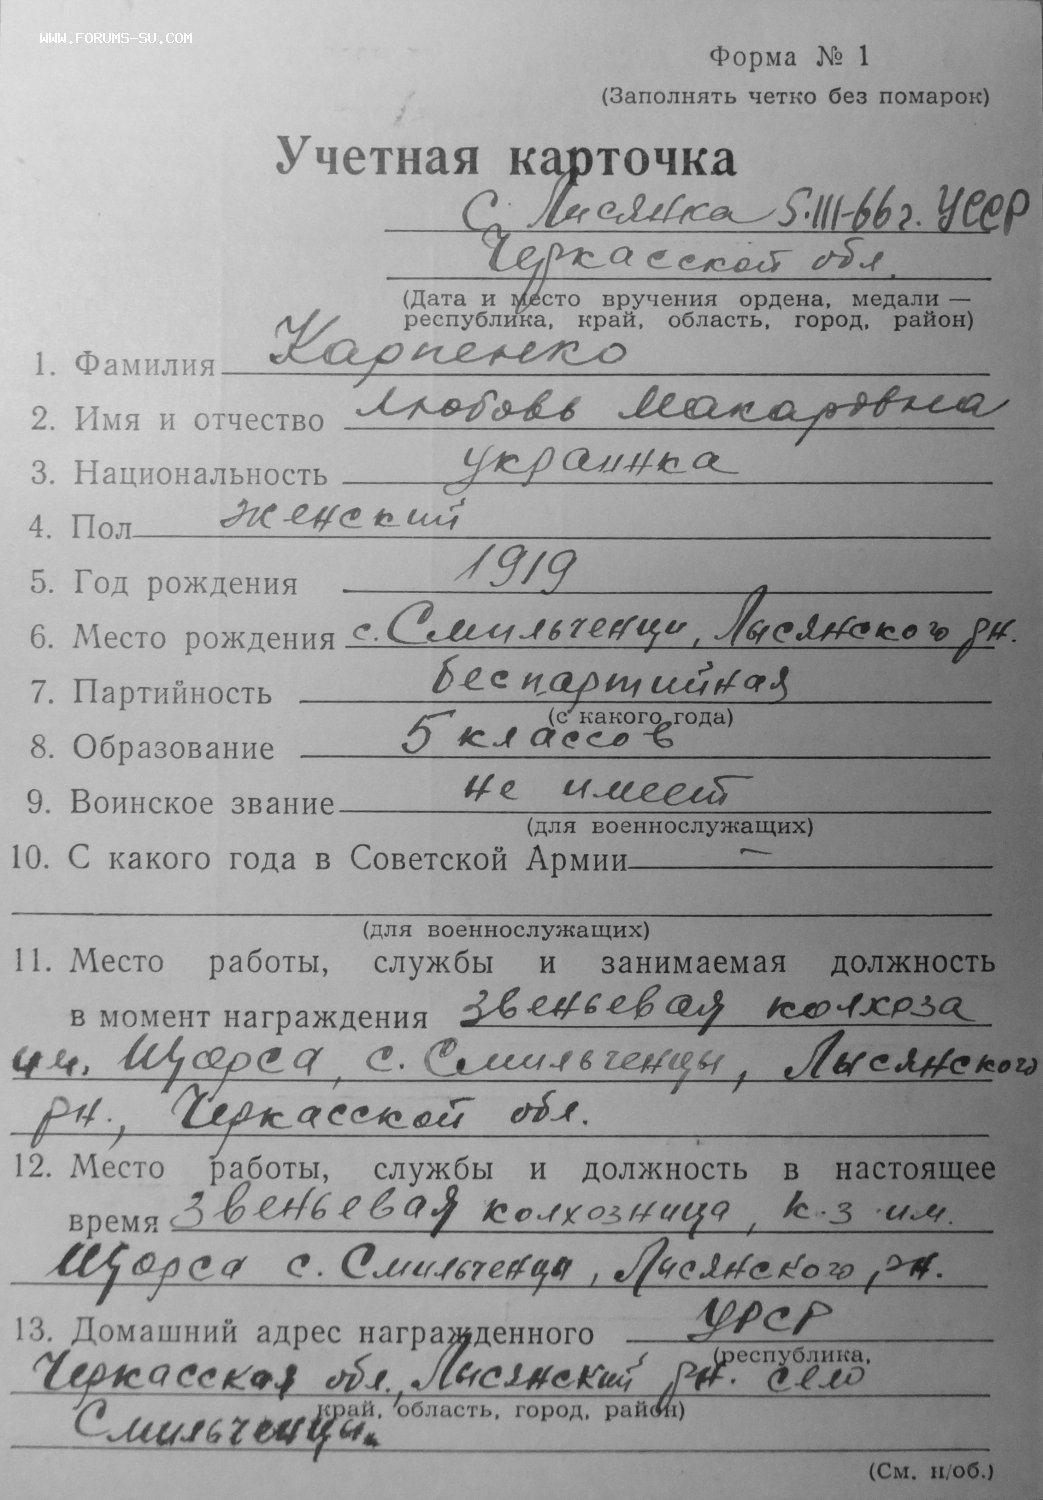 WWW.FORUMS-SU.COM
Форма № 1
(Заполнять четко без помарок)
Учетная карточка
с. Лисянка 5.III-66 г. УССР
Черкасской обл.
(Дата и место вручения ордена, медали —
республика, край, область, город, район)
1. Фамилия Карпенко
2. Имя и отчество Любовь Макаровна
3. Национальность украинка
4. Пол женский
5. Год рождения 1919
6. Место рождения с. Смильченци, Лысянского рн.
7. Партийность беспартийная
(с какого года)
8. Образование 5 классов
9. Воинское звание не имеет
(для военнослужащих)
10. С какого года в Советской Армии —
(для военнослужащих)
11. Место работы, службы и занимаемая должность
в момент награждения звеньевая колхоза
им. Щорса, с. Смильченцы, Лысянского
рн., Черкасской обл.
12. Место работы, службы и должность в настоящее
время звеньевая колхозница, к-з им.
Щорса с. Смильченци, Лисянского рн.
13. Домашний адрес награжденного УРСР
(республика,
Черкасская обл., Лысянский рн. село
край, область, город, район)
Смильченцы.
(См. н/об.)